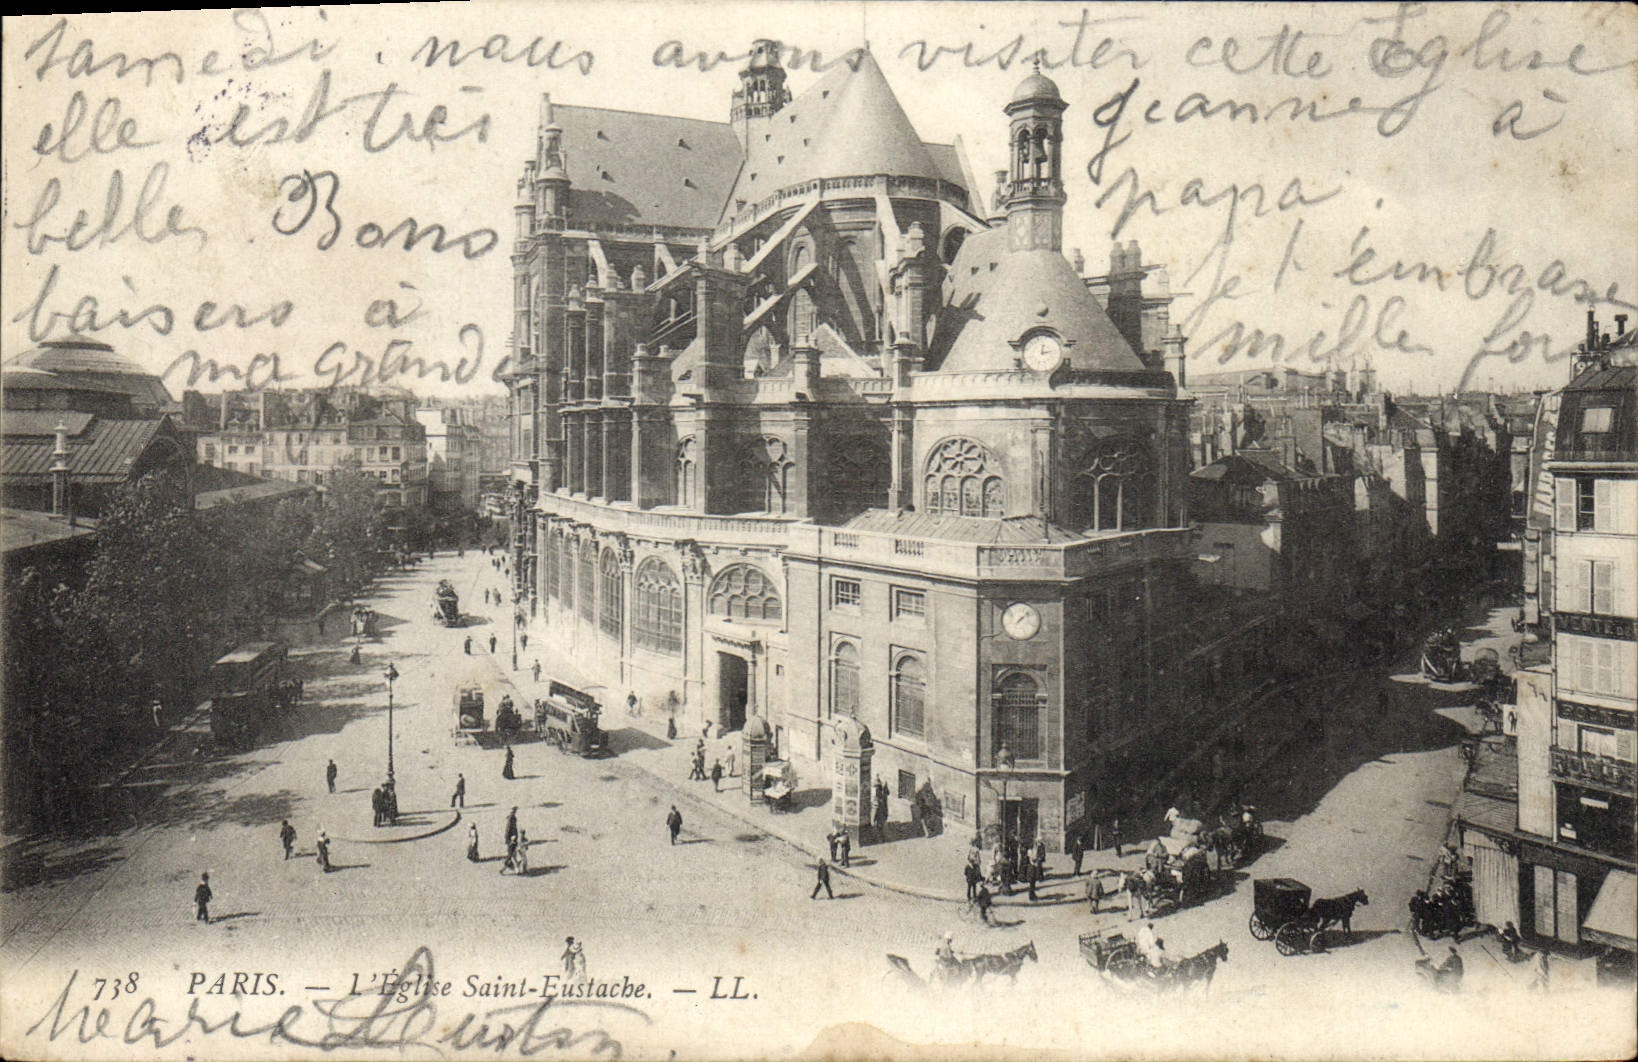 samedi. nous avons visiter cette Eglise
elle est très
belle. Bons
baisers à
ma grande
Jeanne à
papa.
Je t'embrasse
mille foi
VERTE
738 PARIS. — L'Église Saint-Eustache. — LL.
Marie